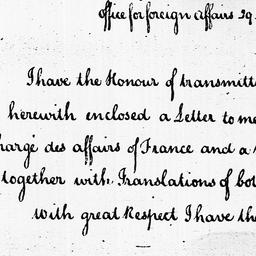 Office for foreign Affairs 29
I have the Honour of transmitt
herewith enclosed a Letter to me
hargé des affairs of France and a
together with Translations of bot
with great Respect I have the